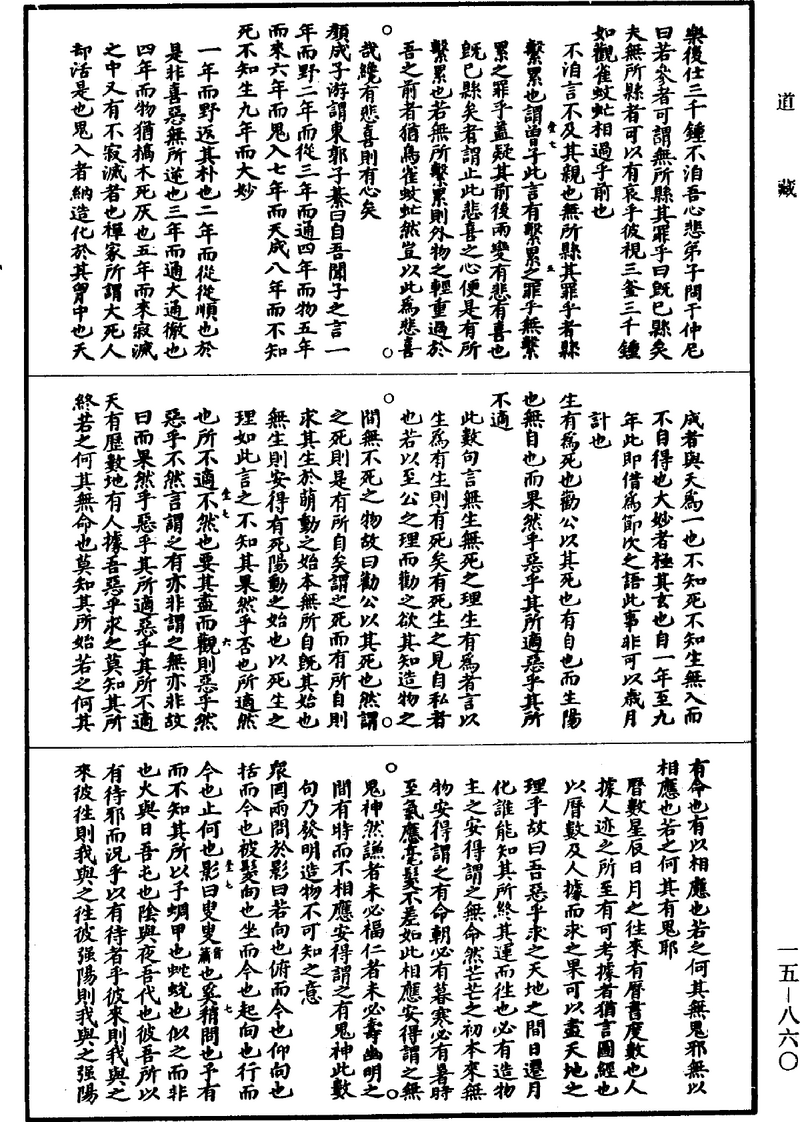 道藏
樂後仕三千鍾不洎吾心悲弟子問于仲尼
曰若參者可謂無所縣其罪乎曰既已縣矣
夫無所縣者可以有哀乎彼視三釜三千鍾
如觀雀蚊虻相過乎前也
不洎言不及其親也無所縣其罪乎者縣
繫累也謂曾子此言有繫累之罪乎無繫
累之罪乎蓋疑其前後兩變有悲有喜也
既已縣矣者謂止此悲喜之心便是有所
繫累也若無所繫累則外物之輕重過於
吾之前者猶鳥雀蚊虻然豈以此為悲喜
哉纔有悲喜則有心矣
顏成子游謂東郭子綦曰自吾聞子之言一
年而野二年而從三年而通四年而物五年
而來六年而鬼入七年而天成八年而不知
死不知生九年而大妙
一年而野返其朴也二年而從從順也於
是非喜惡無所逆也三年而通大通徹也
四年而物猶槁木死灰也五年而來寂滅
之中又有不寂滅者也禪家所謂大死人
却活是也鬼入者納造化於其胷中也天
成者與天為一也不知死不知生無入而
不自得也大妙者極其玄也自一年至九
年此即借為節次之語此事非可以歲月
計也
生有為死也勸公以其死也有自也而生陽
也無自也而果然乎惡乎其所適惡乎其所
不適
此數句言無生無死之理生有為者言以
生為有生則有死矣有死生之見自私者
也若以至公之理而勸之欲其知造物之
間無不死之物故曰勸公以其死也然謂
之死則是有所自矣謂之死而有所自則
求其生於萌動之始本無所自既其始也
無生則安得有死陽動之始也以死生之
理如此言之不知其果然乎否也所適然
也所不適不然也要其盡而觀則惡乎然
惡乎不然言謂之有亦非謂之無亦非故
曰而果然乎惡乎其所適惡乎其所不適
天有歷數地有人據吾惡乎求之莫知其所
終若之何其無命也莫知其所始若之何其
有命也有以相應也若之何其無鬼邪無以
相應也若之何其有鬼耶
曆數星辰日月之往來有曆書度數也人
據人迹之所至有可考據者猶言圖經也
以曆數及人據而求之果可以盡天地之
理乎故曰吾惡乎求之天地之間日遷月
化誰能知其所終其運而往也必有造物
主之安得謂之無命然芒芒之初本來無
物安得謂之有命朝必有暮寒必有暑時
至氣應毫髮不差如此相應安得謂之無
鬼神然謙者未必福仁者未必壽幽明之
間有時而不相應安得謂之有鬼神此數
句乃發明造物不可知之意
眾罔兩問於影曰若向也俯而今也仰向也
括而今也被髮向也坐而今也起向也行而
今也止何也影曰叟叟也奚稍問也予有
而不知其所以予蜩甲也蛇蛻也似之而非
也火與日吾屯也陰與夜吾代也彼吾所以
有待邪而況乎以有待者乎彼來則我與之
來彼往則我與之往彼强陽則我與之强陽
一五—八六〇